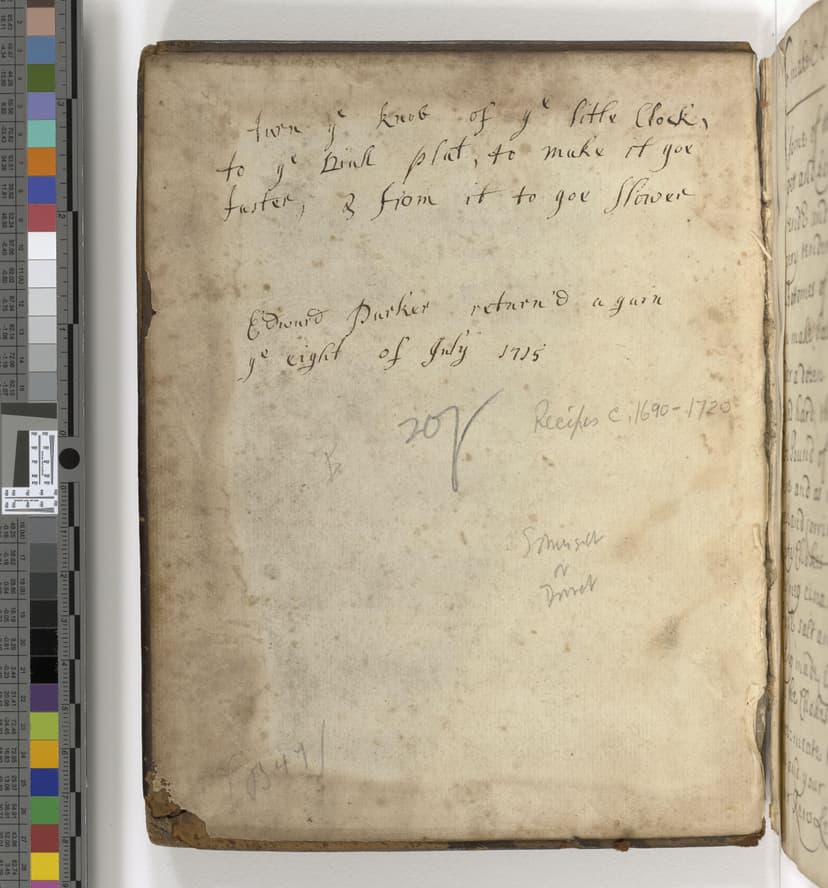 turn yᵉ knob of yᵉ little Clock,
to yᵉ Diall plat, to make it goe
faster, & from it to goe slower
Edward Parker return'd again
yᵉ eight of July 1715
20/
Recipes c. 1690-1720
Somerset
or
Dorset